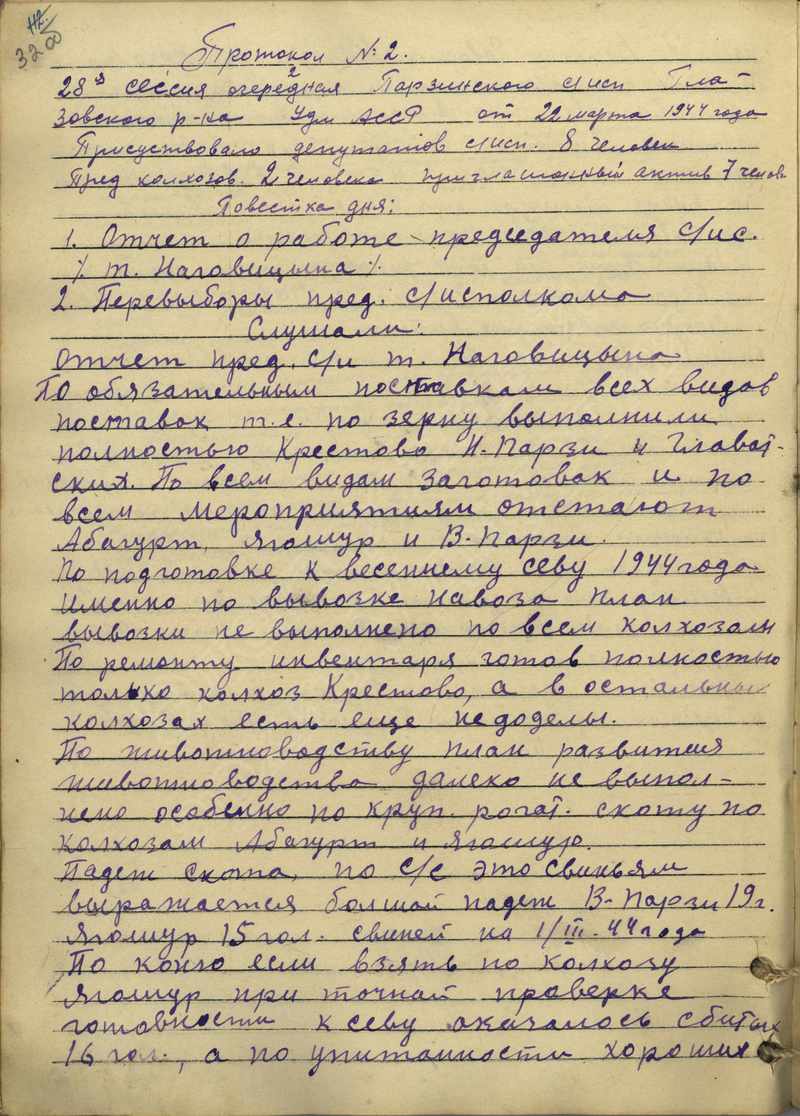 Протокол №2.
28я сессия очередная Парзинского с/исп Гла-
зовского р-на Удм АССР от 22 марта 1944 года
Присуствовало депутатов с/исп. 8 человек
Пред колхозов. 2 человека приглашонный актив 7 челов
Повестка дня:
1. Отчет о работе председателя с/ис.
% т. Наговицына %.
2. Перевыборы пред. с/исполкома
Слушали:
Отчет пред. с/и т. Наговицына
По обязательным поставкам всех видов
поставок т.е. по зерну выполнили
полностью Крестово Н-Парзи и Глават-
ских. По всем видам заготовок и по
всем мероприятиям отстают
Абагурт, Ягошур и В-Парзи.
По подготовке к весеннему севу 1944 года
именно по вывозке навоза план
вывозки не выполнено по всем колхозам
По ремонту инвентаря готов полностью
только колхоз Крестово, а в остальных
колхозах есть еще недоделы.
По животноводству план развития
животноводства далеко не выпол-
нено особенно по круп. рогат. скоту по
колхозам Абагурт и Ягошур.
Падеж скота, по с/с это свиньям
выражается большой падеж В-Парзи 19 г.
Ягошур 15 гол. свиней на 1/III-44 года
По коню если взять по колхозу
Ягошур при точной проверке
готовности к севу оказалось сбитых
16 гол., а по упитанности хороших